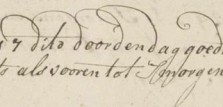 7 dito door den dag goed
als vooren tot Smorgen